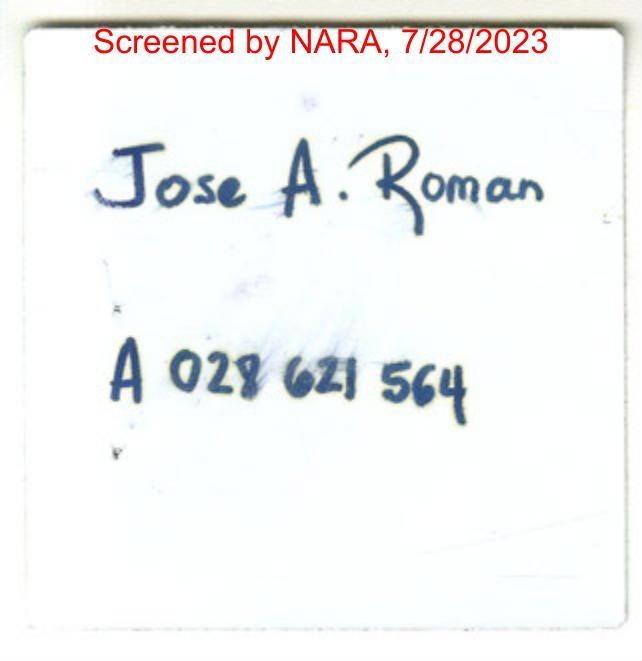 Screened by NARA, 7/28/2023
Jose A. Roman
A 028 621 564